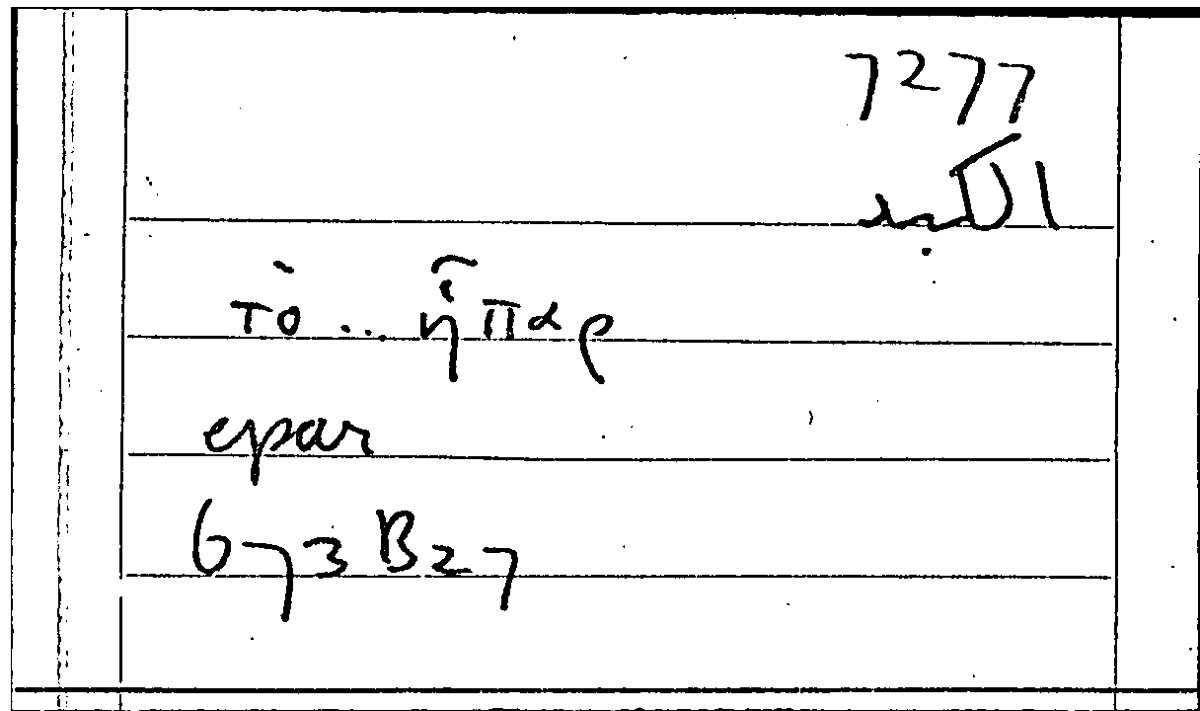 7277
الكبد
τὸ ... ἧπαρ
epar
673 B 27